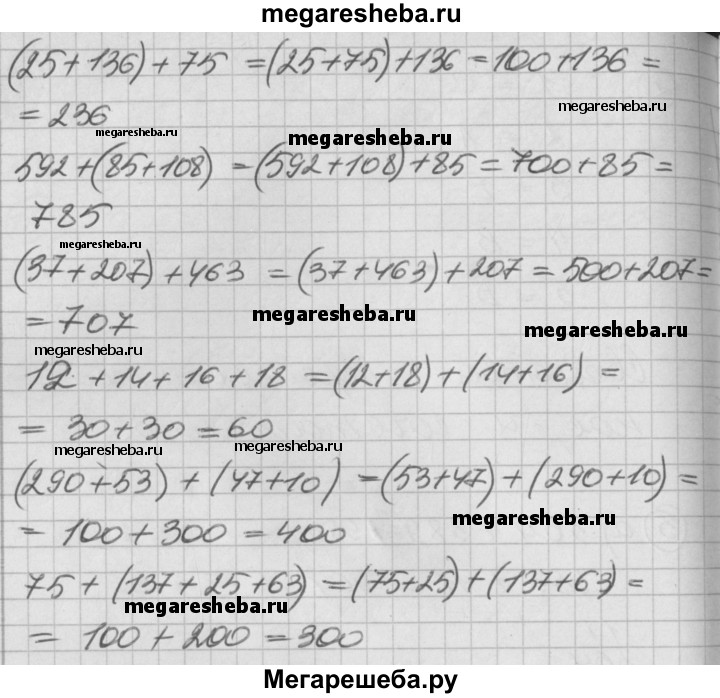 megaresheba.ru
(25+136)+75 =(25+75)+136=100+136=
megaresheba.ru
=236
megaresheba.ru
megaresheba.ru
592+(85+108) =(592+108)+85=700+85=
785
megaresheba.ru
(37+207)+463 =(37+463)+207=500+207=
=707
megaresheba.ru
megaresheba.ru
megaresheba.ru
12+14+16+18 =(12+18)+(14+16)=
= 30+30=60
megaresheba.ru
megaresheba.ru
(290+53)+(47+10) =(53+47)+(290+10)=
megaresheba.ru
= 100+300=400
75+(137+25+63)=(75+25)+(137+63)=
megaresheba.ru
= 100+200=300
Мегарешеба.ру